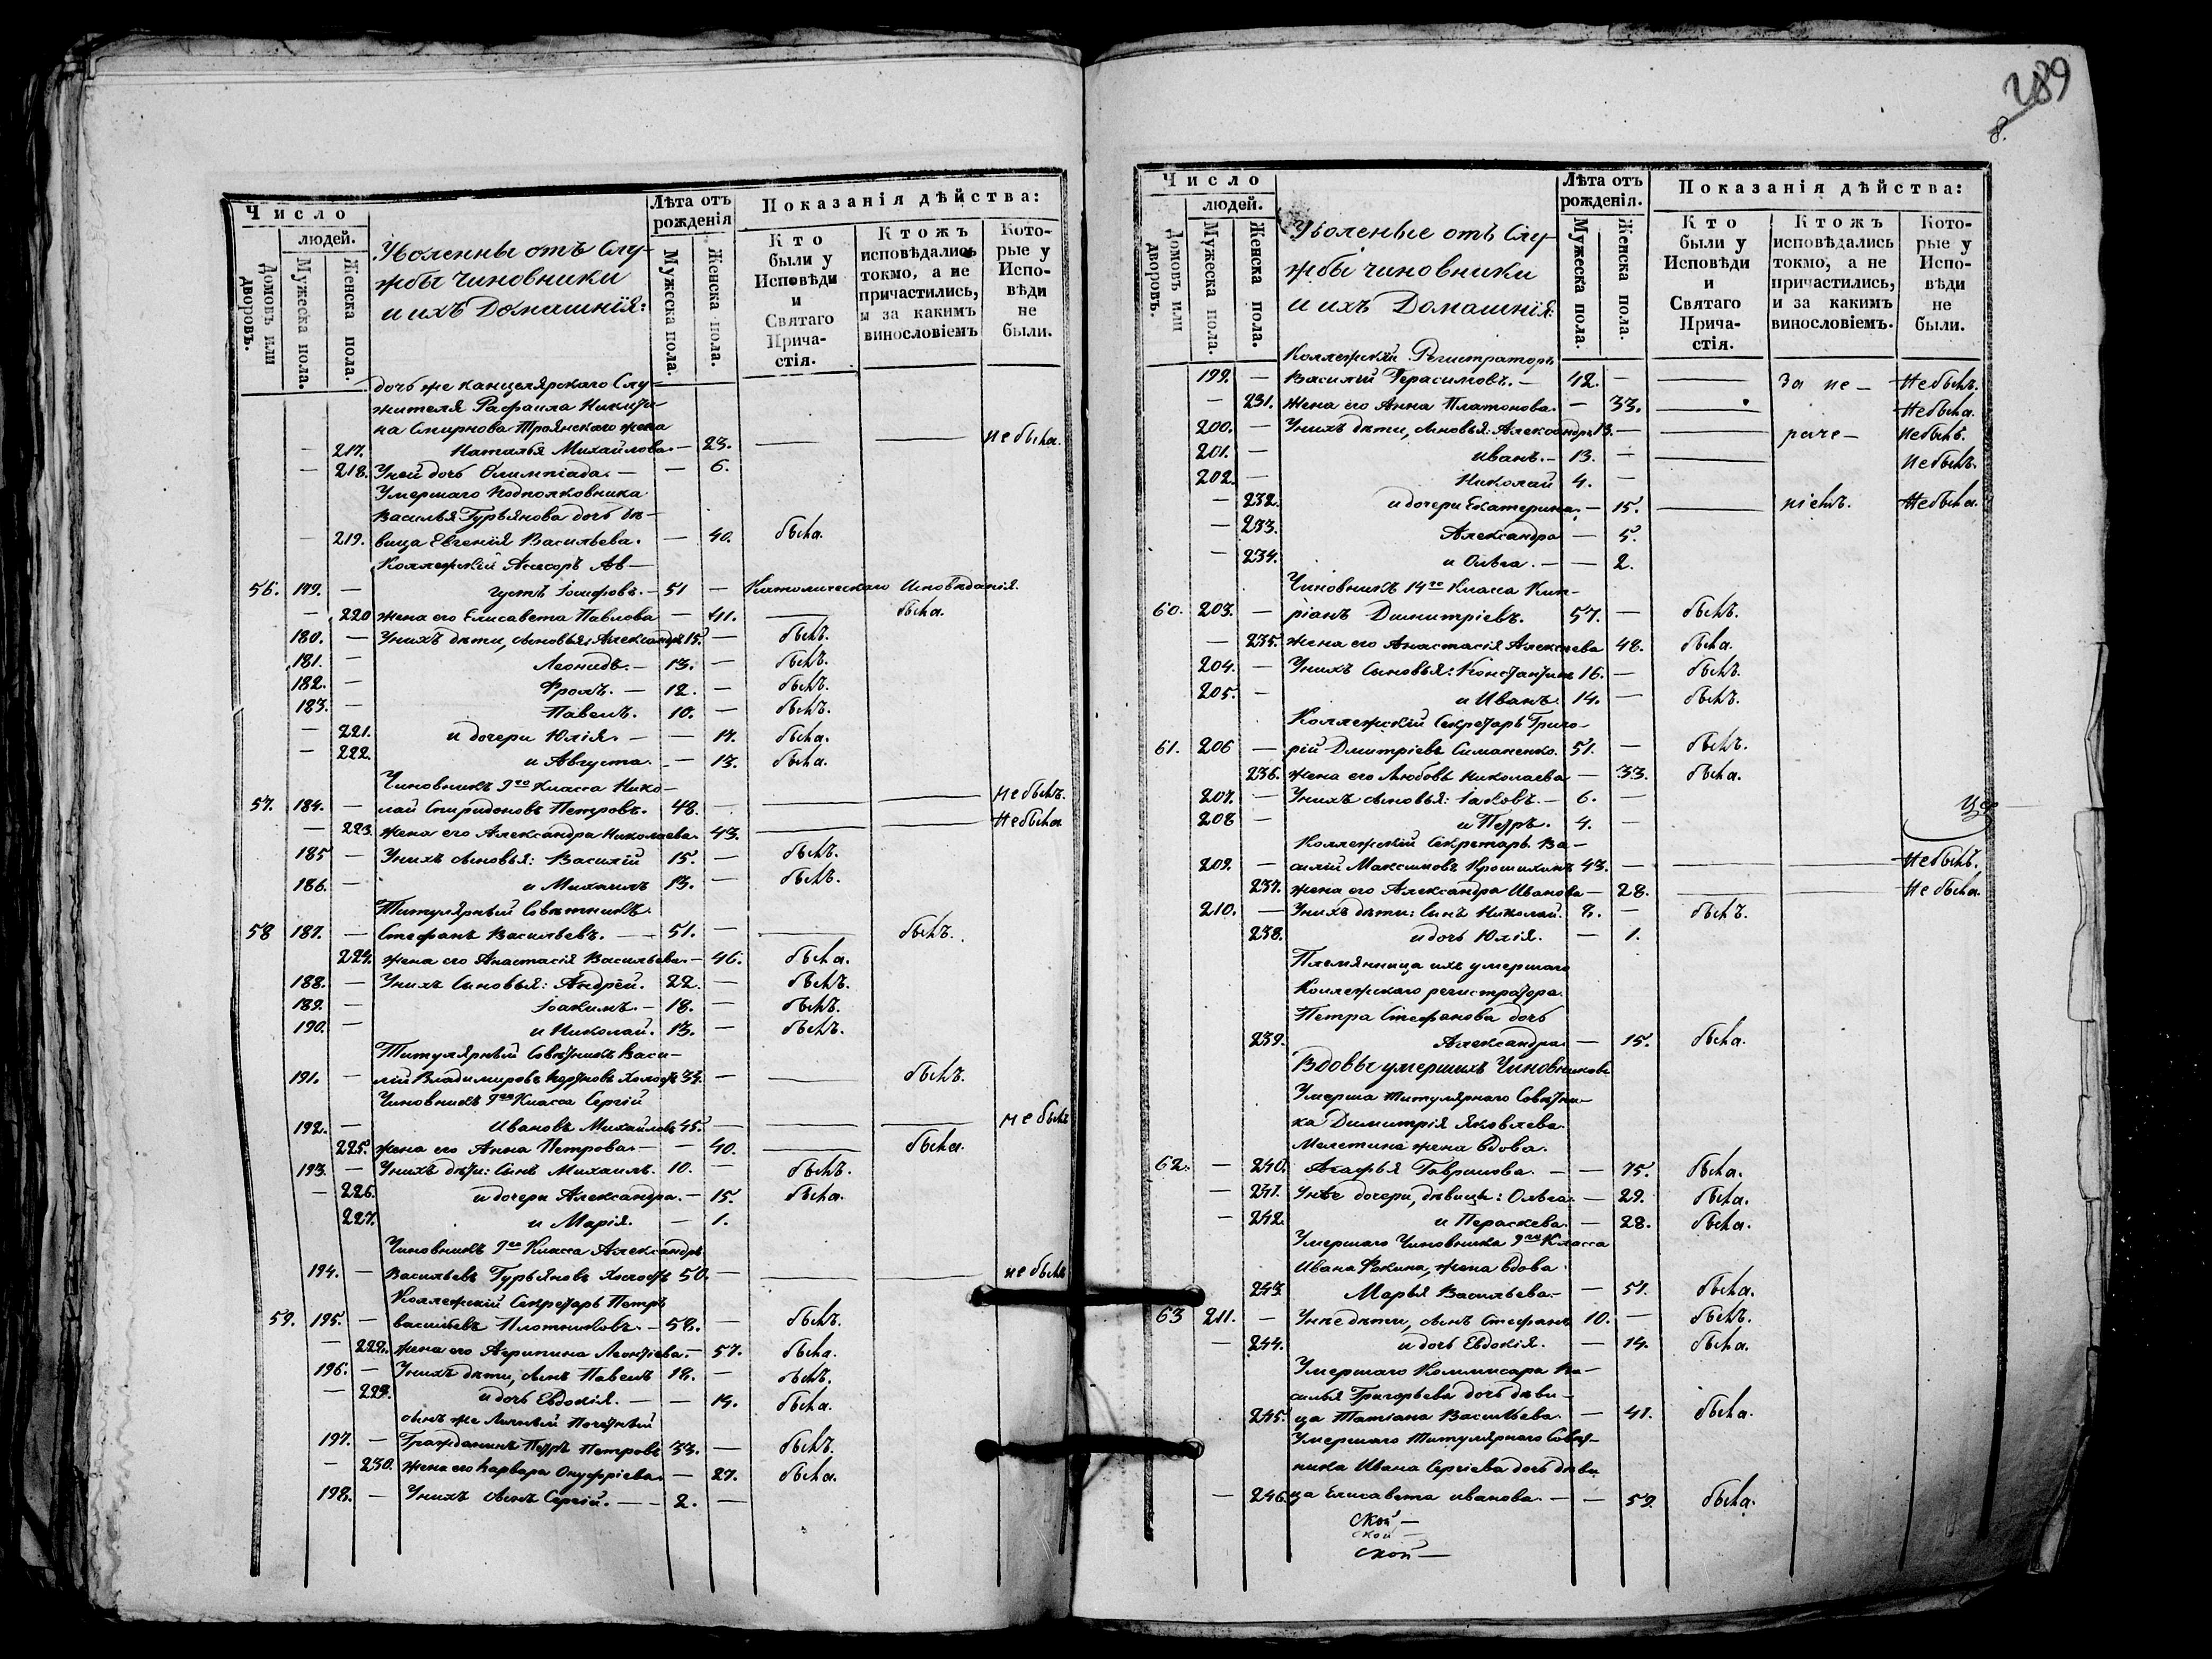 289
8.
Число
людей.
Домовъ или дворовъ.
Мужеска пола.
Женска пола.
Уволенны отъ Слу-
жбы Чиновники
и ихъ Домашнія:
Лѣта отъ рожденія
Мужеска пола.
Женска пола.
Показанія дѣйства:
Кто были у Исповѣди и Святаго Прича-стія.
Ктожъ исповѣдались токмо, а не причастились, и за какимъ винословіемъ
Кото-рые у Испо-вѣди не были.
дочь же канцелярскаго Слу-
жителя Рафаила Никити-
на Смирнова-Троянскаго жена
— 217. Наталья Михайлова. — 23. — — не была.
— 218. У ней дочь Олимпіада. — — 6.
Умершаго Подполковника
Василья Гурьянова дочь дѣ-
— 219. вица Евгенія Васильева. — 40. была.
Коллежскій Ассесоръ Ав-
56. 179. — густъ Іосифовъ. — 51 — Католическаго Исповѣданія.
— 220 жена его Елисавета Павлова — 41. — была.
180. — У нихъ дѣти, сыновья: Александръ 15. — былъ.
181. — Леонидъ. — 13. — былъ.
182. — Фролъ. — 12. — былъ.
183. — Павелъ. 10. — былъ.
— 221. и дочери Юлія. — — 17. была.
— 222. и Августа. — 13. была.
Чиновникъ 9го Класса Нико-
57. 184. — лай Спиридоновъ Петровъ. 48. — — — не былъ.
— 223. жена его Александра Николаева. 43. — — Не была
185 — У нихъ сыновья: Василій 15. — былъ.
186. — и Михаилъ 13. — былъ.
Титулярный Совѣтникъ
58 187. — Стефанъ Васильевъ. — 51. — — былъ.
224. жена его Анастасія Васильева. — 46. была.
188. — У нихъ Сыновья: Андрей. 22. — былъ.
189. — Іоакимъ. — 18. — былъ.
190. — и Николай. 13. — былъ.
Титулярный Совѣтникъ Васи-
191. — лій Владимировъ холостъ 33. — — былъ.
Чиновникъ 9го Класса Сергій
192. — Ивановъ Михайловъ 45. — — — не былъ
225. жена его Анна Петрова. — — 40. — была.
193. — У нихъ дѣти: Сынъ Михаилъ. 10. — былъ.
— 226. и дочери Александра. — 15. была.
227. и Марія. — 1.
Чиновникъ 9го Класса Александръ
194. — Васильевъ Гурьяновъ Холостъ 50. — — — не былъ
Коллежскій Секретарь Петръ
59. 195. — Васильевъ Плотниковъ. — 58. — былъ.
— 228. жена его Агрипина Леонтіева — 57. была.
196. — У нихъ дѣти, сынъ Павелъ 18. — былъ.
— 229. и дочь Евдокія. — — 14. была.
сынъ же Личный Почетный
197. — Гражданинъ Петръ Петровъ 33. — былъ.
— 230. жена его Варвара Онуфріева. — 27. была.
198. — У нихъ сынъ Сергій. — — 2. —
Число
людей.
Домовъ или дворовъ.
Мужеска пола.
Женска пола.
Уволеные отъ Слу-
жбы чиновники
и ихъ Домашнія:
Лѣта отъ рожденія.
Мужеска пола.
Женска пола.
Показанія дѣйства:
Кто были у Исповѣди и Святаго Прича-стія.
Ктожъ исповѣдались токмо, а не причастились, и за какимъ винословіемъ.
Кото-рые у Испо-вѣди не были.
Коллежскій Регистраторъ
199. — Василій Герасимовъ. — 42. — — За не- Не былъ.
— 231. Жена его Анна Платонова. — 33. — Не была.
200. — У нихъ дѣти, сыновья: Александръ 13. — — раче- Не былъ.
201. — Иванъ. — 13. — — Не былъ.
202. — Николай 4. —
— 232. и дочери Екатерина. — 15. — ніемъ. Не была.
— 233. Александра — 5.
— 234. и Ольга. — — 2.
Чиновникъ 14го Класса Кип-
60. 203. — ріанъ Димитріевъ. 57. — былъ.
— 235. жена его Анастасія Алексѣева 48. была.
204. — У нихъ Сыновья: Константинъ 16. — былъ.
205. — и Иванъ. 14. — былъ.
Коллежскій Секретарь Григо-
61. 206 — рій Дмитріевъ Симаненко. 51. — былъ.
236. жена его Любовь Николаева — 33. была.
207. — У нихъ сыновья: Іаковъ. — 6. —
208 — и Петръ. 4. —
Коллежскій Секретарь Ва-
209. — силій Максимовъ 43. — — — Не былъ.
237. жена его Александра Иванова — 28. — — Не была.
210. — У нихъ дѣти: Сынъ Николай. 8. — былъ.
238. и дочь Юлія. — 1.
Племянница ихъ умершаго
Коллежскаго регистратора
Петра Стефанова дочь
239. Александра — 15. была.
Вдовы умершихъ Чиновниковъ
Умерша Титулярнаго Совѣтни-
ка Димитрія Яковлева
Мелетина жена вдова.
62. — 240. Агафья Гаврилова. — — 75. была.
— 241. У нѣе дочери, дѣвицы: Ольга. — 29. была.
— 242. и Пераскева. — 28. была.
Умершаго Чиновника 9го Класса
Ивана Фокина, жена вдова
243. Марья Васильева. — — 51. была.
63 211. — У нѣе дѣти, сынъ Стефанъ 10. — былъ.
— 244. и дочь Евдокія. — 14. была.
Умершаго Коммисара Ва-
силья Григорьева дочь дѣви-
245. ца Татіана Васильева. — 41. была.
Умершаго Титулярнаго Совѣт-
ника Ивана Сергіева дочь дѣви
— 246. ца Елисавета Иванова. — — 59. была.
Ской —
ской —
ской —